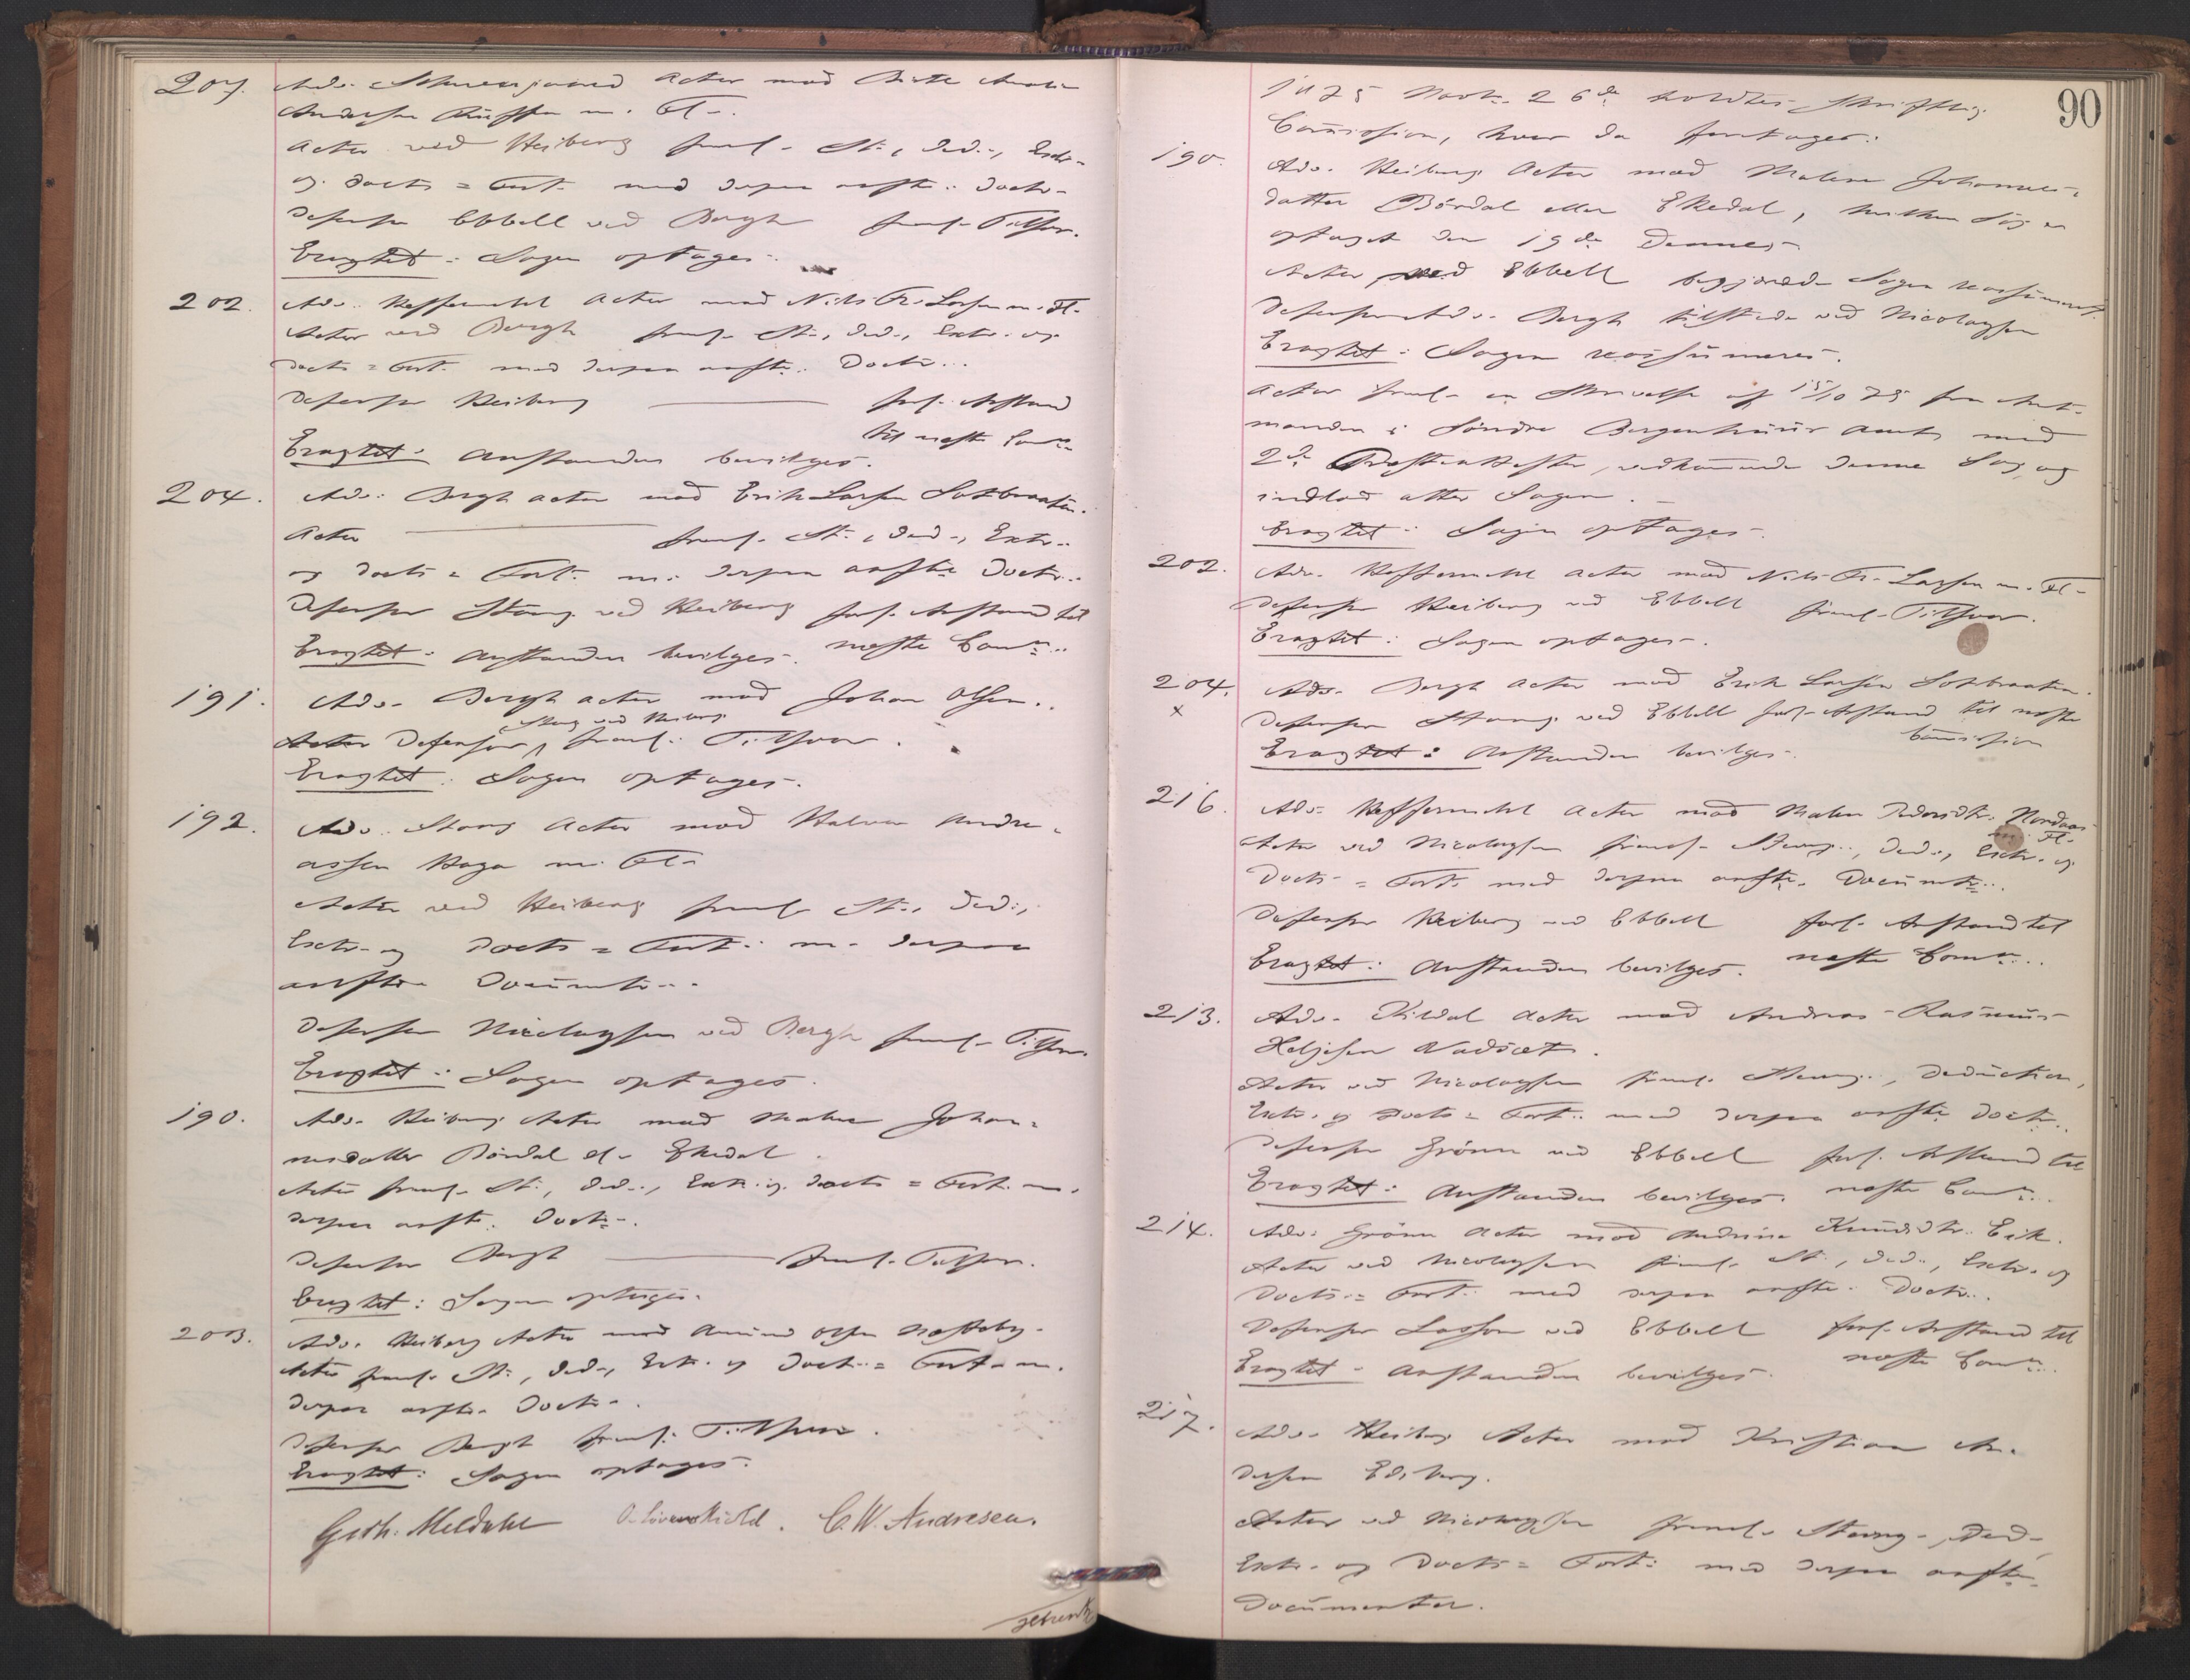 207. Adv. acter mod Birte
Andersen m. Fl.
Acter ved Heiberg freml. St., Ded., Extr.
og Docts = Fort. med derpaa anfte. Docts.
Defensor Ebbell ved Bergh freml. Tilsvar.
Eragtet: Sagen optages.
202. Adv. Hessernehl Acter mod Nils Fr. Larsen m. Fl.
Acter ved Bergh freml. St., Ded., Extr. og
Docts = Fort. med derpaa anfte. Docts.
Defensor Heiberg forl. Anstand
til næste Comn.
Eragtet: Anstanden bevilges.
204. Adv. Bergh acter mod Erik Larsen Sotbraaten.
Acter freml. St., Ded., Extr.
og Docts = Fort. m. derpaa anfte Docts.
Defensor Stang ved Heiberg forl. Anstand til
næste Comn.
Eragtet: Anstanden bevilges.
191. Adv. Bergh acter mod Johan Olsen.
Stang ved Heiberg
Acter Defensor freml. Tilsvar.
Eragtet: Sagen optages.
192. Adv. Stang Acter mod Halvor Andre-
assen Haga m. Fl.
Acter ved Heiberg freml. St., Ded.,
Extr. og Docts = Fort. m. derpaa
anførte Documenter.
Defensor Nicolaysen ved Bergh freml. Tilsvar.
Eragtet: Sagen optages.
190. Adv. Heiberg Acter mod Malene Johan-
nesdatter Bördal el. Ekedal.
Acter freml. St., Ded., Extr. og Docts = Fort. m.
derpaa anfte. Docts.
Defensor Bergh freml. Tilsvar.
Eragtet: Sagen optages.
203. Adv. Heiberg Acter mod Amund Olsen Næsteby.
Acter freml. St., Ded., Extr. og Docts = Fort. m.
derpaa anfte. Docts.
Defensor Bergh freml. Tilsvar.
Eragtet: Sagen optages.
Gerh. Meldahl O. Løvenskiold. C. W. Andresen.
90
1875 Novbr. 26de holdtes Skriftlig
Commission, hvor da foretages:
190. Adv. Heiberg Acter mod Malene Johannes-
datter Bördal eller Ekedal, hvilken Sag er
optaget den 19de Dennes.
Acter ved Ebbell begjærede Sagen reassumeret.
Defensor Adv. Bergh tilstede ved Nicolaysen
Eragtet: Sagen reassumeres.
Acter freml. en Skrivelse af 15/10 75 fra Amt-
manden i Söndre Bergenhuus Amt med
2de vedkommende denne Sag, og
indlod atter Sagen.
Eragtet: Sagen optages.
202. Adv. Hessernehl Acter mod Nils Fr. Larsen m. Fl.
Defensor Heiberg ved Ebbell freml. Tilsvar.
Eragtet: Sagen optages.
204. Adv. Bergh Acter mod Erik Larsen Sotbraaten.
x Defensor Stang ved Ebbell forl. Anstand til næste
Commission
Eragtet: Anstanden bevilges.
216. Adv. Hessernehl Acter mod Malene Pedersdtr. Nordaas
m. Fl.
Acter ved Nicolaysen freml. Stevng., Ded., Extr. og
Docts = Fort. med derpaa anfte. Documtr.
Defensor Heiberg ved Ebbell forl. Anstand til
næste Comn.
Eragtet: Anstanden bevilges.
213. Adv. Kildal Acter mod Andreas Rasmus
Helgesen Vadset.
Acter ved Nicolaysen freml. Stevng., Deduction,
Extr. og Docts = Fort. med derpaa anfte Docts.
Defensor Grönn ved Ebbell forl. Anstand til
næste Comn.
Eragtet: Anstanden bevilges.
214. Adv. Grönn Acter mod Andrine Knudsdtr. Eik.
Acter ved Nicolaysen freml. St., Ded., Extr. og
Docts = Fort. med derpaa anfte. Docts.
Defensor Lasson ved Ebbell forl. Anstand til
næste Comn.
Eragtet: Anstanden bevilges.
217. Adv. Heiberg Acter mod Kristian An-
dersen Edsberg.
Acter ved Nicolaysen freml. Stevng., Ded.,
Extr. og Docts = Fort. med derpaa anfte.
Documenter.